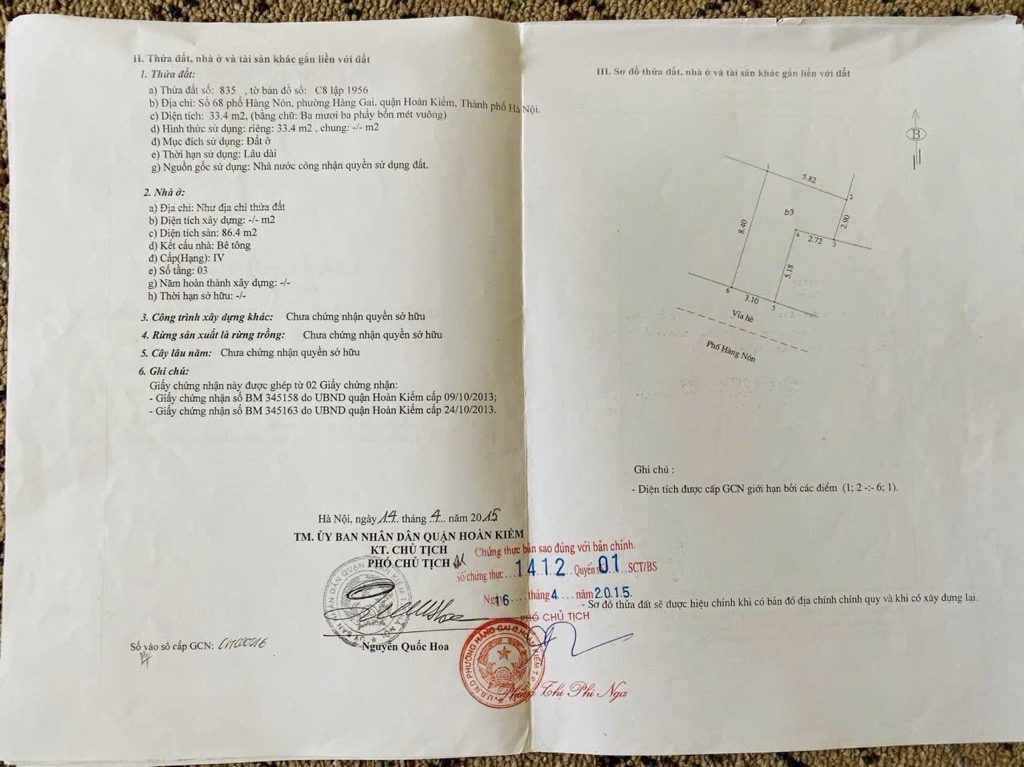 II. Thửa đất, nhà ở và tài sản khác gắn liền với đất
1. Thửa đất:
a) Thửa đất số: 835 , tờ bản đồ số: C8 lập 1956
b) Địa chỉ: Số 68 phố Hàng Nón, phường Hàng Gai, quận Hoàn Kiếm, Thành phố Hà Nội.
c) Diện tích: 33.4 m2, (bằng chữ: Ba mươi ba phẩy bốn mét vuông)
d) Hình thức sử dụng: riêng: 33.4 m2 , chung: -/- m2
đ) Mục đích sử dụng: Đất ở
e) Thời hạn sử dụng: Lâu dài
g) Nguồn gốc sử dụng: Nhà nước công nhận quyền sử dụng đất.
2. Nhà ở:
a) Địa chỉ: Như địa chỉ thửa đất
b) Diện tích xây dựng: -/- m2
c) Diện tích sàn: 86.4 m2
d) Kết cấu nhà: Bê tông
đ) Cấp(Hạng): IV
e) Số tầng: 03
g) Năm hoàn thành xây dựng: -/-
h) Thời hạn sở hữu: -/-
3. Công trình xây dựng khác: Chưa chứng nhận quyền sở hữu
4. Rừng sản xuất là rừng trồng: Chưa chứng nhận quyền sở hữu
5. Cây lâu năm: Chưa chứng nhận quyền sở hữu
6. Ghi chú:
Giấy chứng nhận này được ghép từ 02 Giấy chứng nhận:
- Giấy chứng nhận số BM 345158 do UBND quận Hoàn Kiếm cấp 09/10/2013;
- Giấy chứng nhận số BM 345163 do UBND quận Hoàn Kiếm cấp 24/10/2013.
Hà Nội, ngày 14 tháng 4 năm 2015
TM. ỦY BAN NHÂN DÂN QUẬN HOÀN KIẾM
KT. CHỦ TỊCH
PHÓ CHỦ TỊCH
Nguyễn Quốc Hoa
Số vào sổ cấp GCN:
III. Sơ đồ thửa đất, nhà ở và tài sản khác gắn liền với đất
B
1
5.82
2
b3
2.90
8.40
4
2.72
3
5.18
6
3.10
5
Vỉa hè
Phố Hàng Nón
Ghi chú :
- Diện tích được cấp GCN giới hạn bởi các điểm (1; 2 -:- 6; 1).
Chứng thực bản sao đúng với bản chính.
Số chứng thực....1412...Quyển số 01 SCT/BS
Ngày 16 tháng 4 năm 2015.
- Sơ đồ thửa đất sẽ được hiệu chỉnh khi có bản đồ địa chính chính quy và khi có xây dựng lại.
PHÓ CHỦ TỊCH
U.B.N.D PHƯỜNG HÀNG GAI Q.HOÀN KIẾM
Phùng Thị Phi Nga